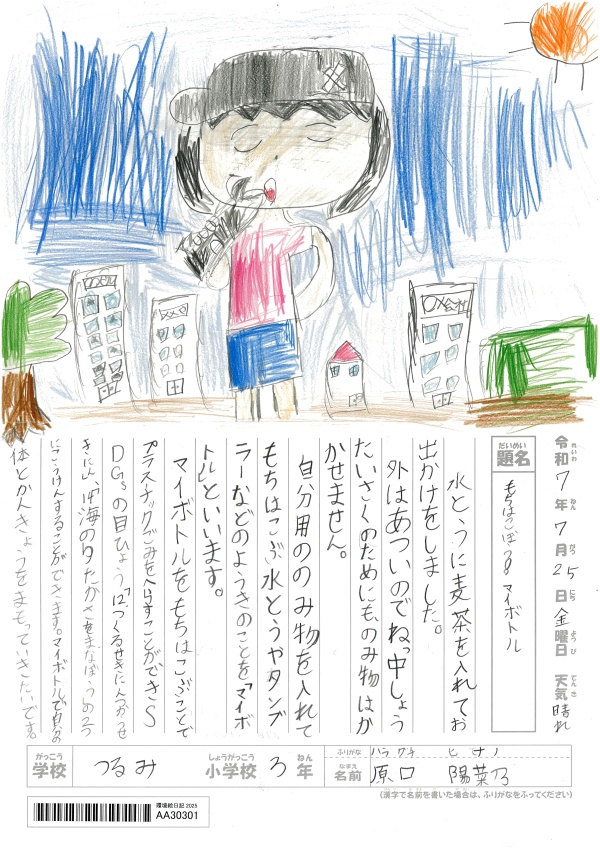 〇×ビル
〇×会社
令和7年7月25日金曜日 天気晴れ
れいわ ねん がつ にち ようび てんき
だいめい
題名
もちはこぼう マイボトル
水とうに麦茶を入れてお
出かけをしました。
外はあついのでねっ中しょう
たいさくのためにも、のみ物はか
かせません。
自分用ののみ物を入れて
もちはこぶ水とうやタンブ
ラーなどのようきのことを「マイボ
トル」といいます。
マイボトルをもちはこぶことで
プラスチックごみをへらすことができS
DGsの目ひょう「12.つくるせきにんつかうせ
きにん」「14.海のゆたかさをまもろう」の2つ
にこうけんすることができます。マイボトルで自分の
体とかんきょうをまもっていきたいです。
がっこう しょうがっこう ねん
学校 つるみ 小学校 3年
ふりがな ハラグチ ヒナノ
なまえ
名前 原口 陽菜乃
(漢字で名前を書いた場合は、ふりがなをふってください)
環境絵日記2025
AA30301